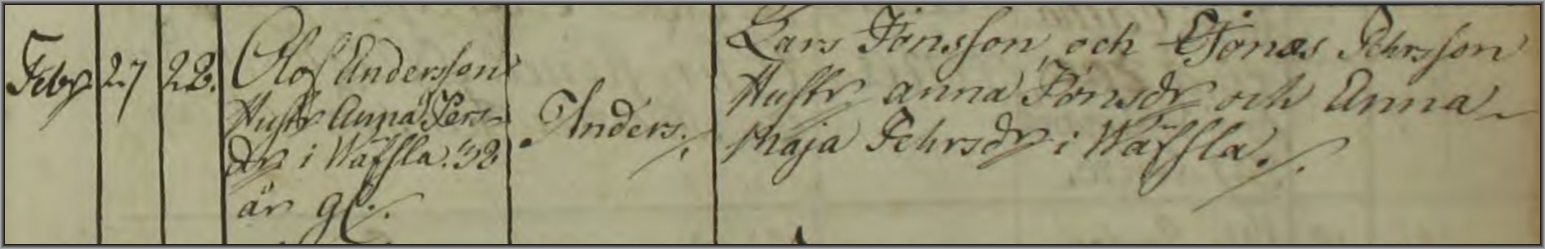 Febr 27 28. Olof Andersson
Hustr Anna Pers-
dr i Wäfsla. 32
år gl.
Anders.
Lars Jönsson, och Jonas Pehrsson
Hustr anna Jönsdr och Anna
Maja Pehrsdr i Wäfsla.